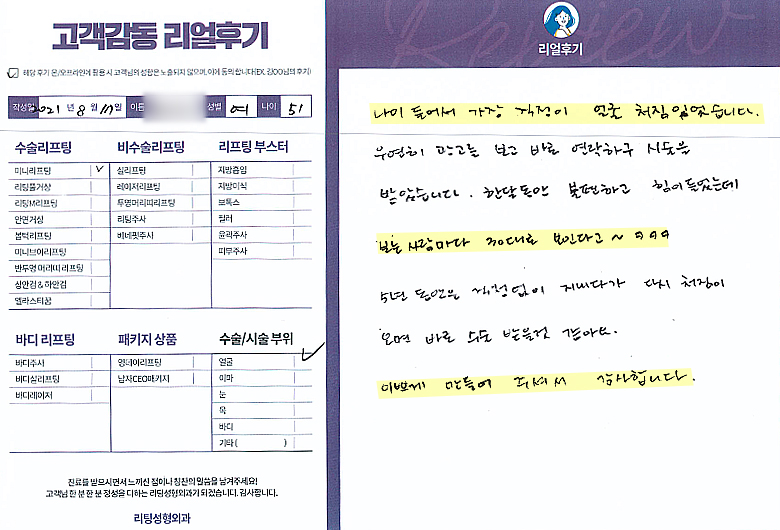 고객감동 리얼후기
해당 후기 온/오프라인에 활용 시 고객님의 성함은 노출되지 않으며, 이에 동의합니다(EX. 김OO님의 후기)
작성일 2021 년 8 월 17일 이름 성별 여 나이 51
수술리프팅 비수술리프팅 리프팅 부스터
미니리프팅 실리프팅 지방흡입
리팅풀거상 레이저리프팅 지방이식
리팅M리프팅 투명머리띠리프팅 보톡스
안면거상 리팅주사 필러
볼턱리프팅 비네핏주사 윤곽주사
미니브이리프팅 피부주사
반투명 머리띠 리프팅
상안검 & 하안검
엘라스티꿈
바디 리프팅 패키지 상품 수술/시술 부위
바디주사 영데이리프팅 얼굴
바디실리프팅 남자CEO패키지 이마
바디레이저 눈
목
바디
기타 ( )
진료를 받으시면서 느끼신 점이나 칭찬의 말씀을 남겨주세요!
고객님 한 분 한 분 정성을 다하는 리팅성형외과가 되겠습니다. 감사합니다.
리팅성형외과
Review
리얼후기
나이 들어서 가장 걱정이 얼굴 처짐이였습니다.
우연히 광고를 보고 바로 연락하구 시술을
받았습니다. 한달동안 불편하고 힘이들었는데
보는 사람마다 30대로 보인다고~ ㅋㅋㅋ
5년 동안은 걱정없이 지내다가 다시 처짐이
오면 바로 수술 받을것 같아요.
이쁘게 만들어 주셔서 감사합니다.